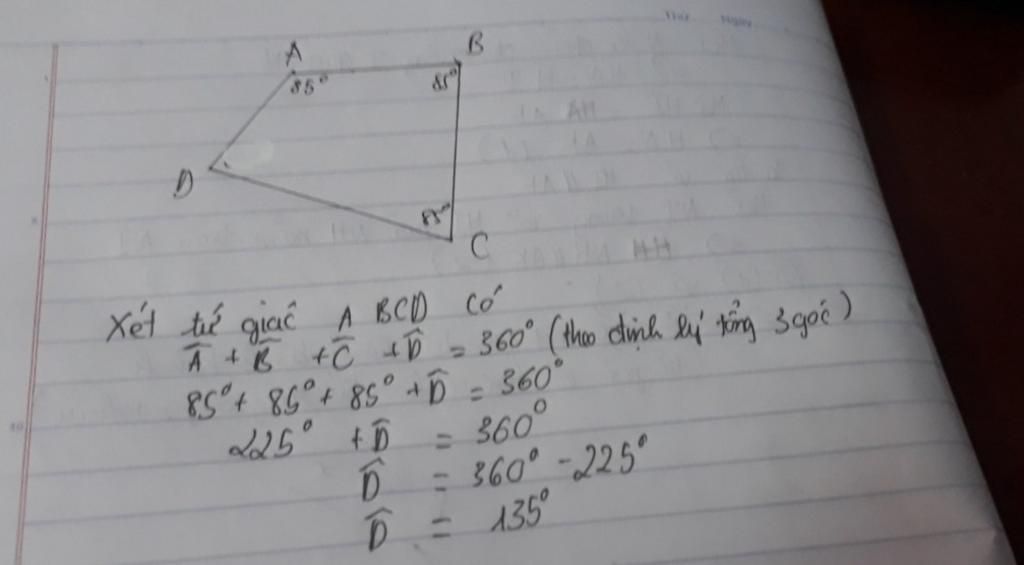 Thứ Ngày
A
B
85°
85°
D
85°
C
Xét tứ giác ABCD có
Â + B̂ + Ĉ + D̂ = 360° (theo định lý tổng 3 góc)
85° + 85° + 85° + D̂ = 360°
225° + D̂ = 360°
D̂ = 360° - 225°
D̂ = 135°